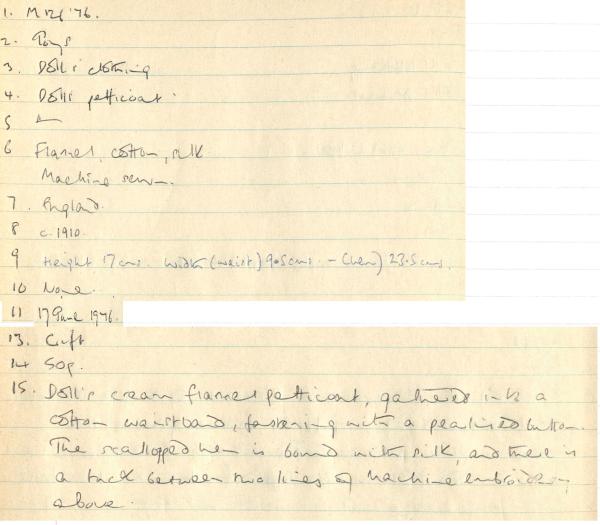 1. M124'76.
2. Toys
3. Doll's clothing
4. Doll's petticoat.
5 —
6 Flannel, cotton, silk
Machine sewn.
7. England.
8 c. 1910.
9 Height 17cms. Width (waist) 9.5cms. - (hem) 23.5cms.
10 None.
11 17 June 1976.
13. Gift
14 50p.
15. Doll's cream flannel petticoat, gathered into a
cotton waistband, fastening with a pearlised button.
The scalloped hem is bound with silk, and there is
a tuck between two lines of machine embroidery
above.